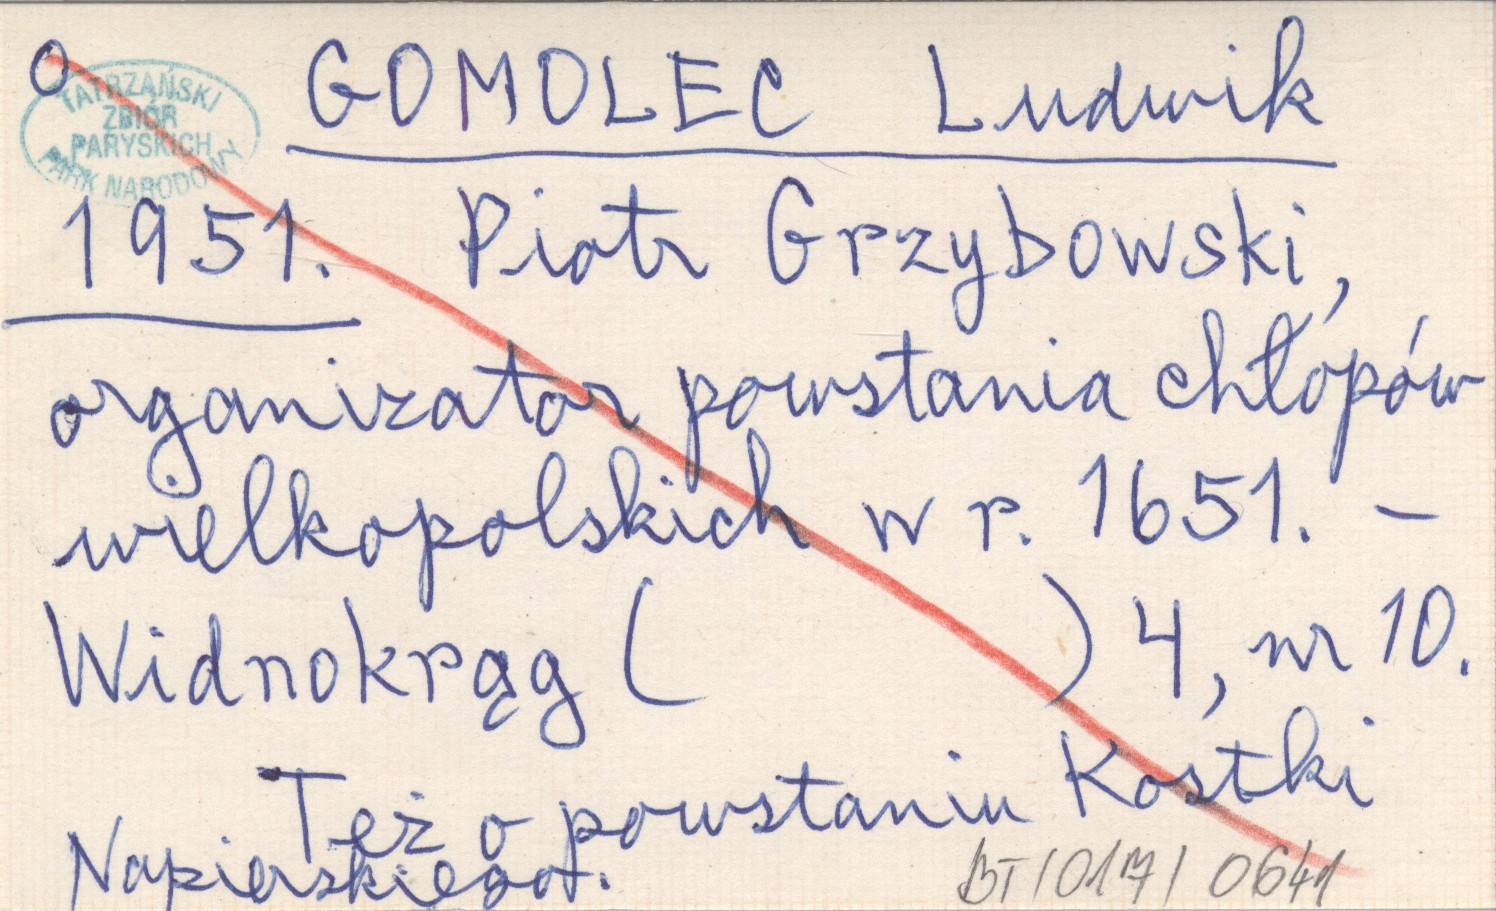 O
TATRZAŃSKI
ZBIÓR
PARYSKICH
PARK NARODOWY
GOMOLEC Ludwik
1951. Piotr Grzybowski,
organizator powstania chłopów
wielkopolskich w r. 1651. –
Widnokrąg (          ) 4, nr 10.
Też o powstaniu Kostki
Napierskiego.
BT/017/0641